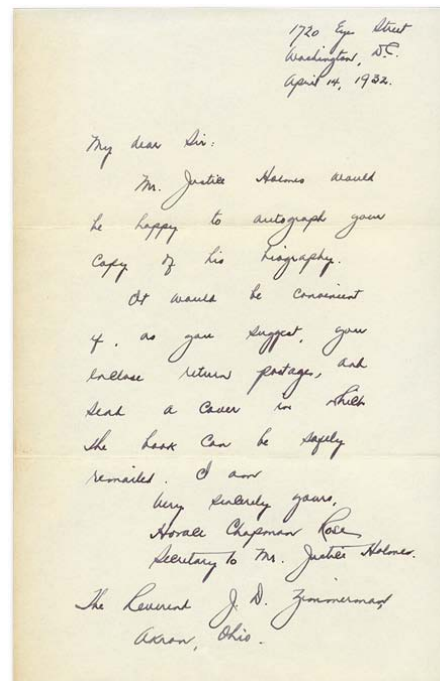 1720 Eye Street
Washington, D.C.
April 14, 1932.
My dear Sir:
Mr. Justice Holmes would
be happy to autograph your
copy of his biography.
It would be convenient
if, as you suggest, you
enclose return postages, and
send a cover in which
the book can be safely
remailed. I am
Very sincerely yours,
Horace Chapman Rose
Secretary to Mr. Justice Holmes.
The Reverend J. D. Zimmerman,
Akron, Ohio.